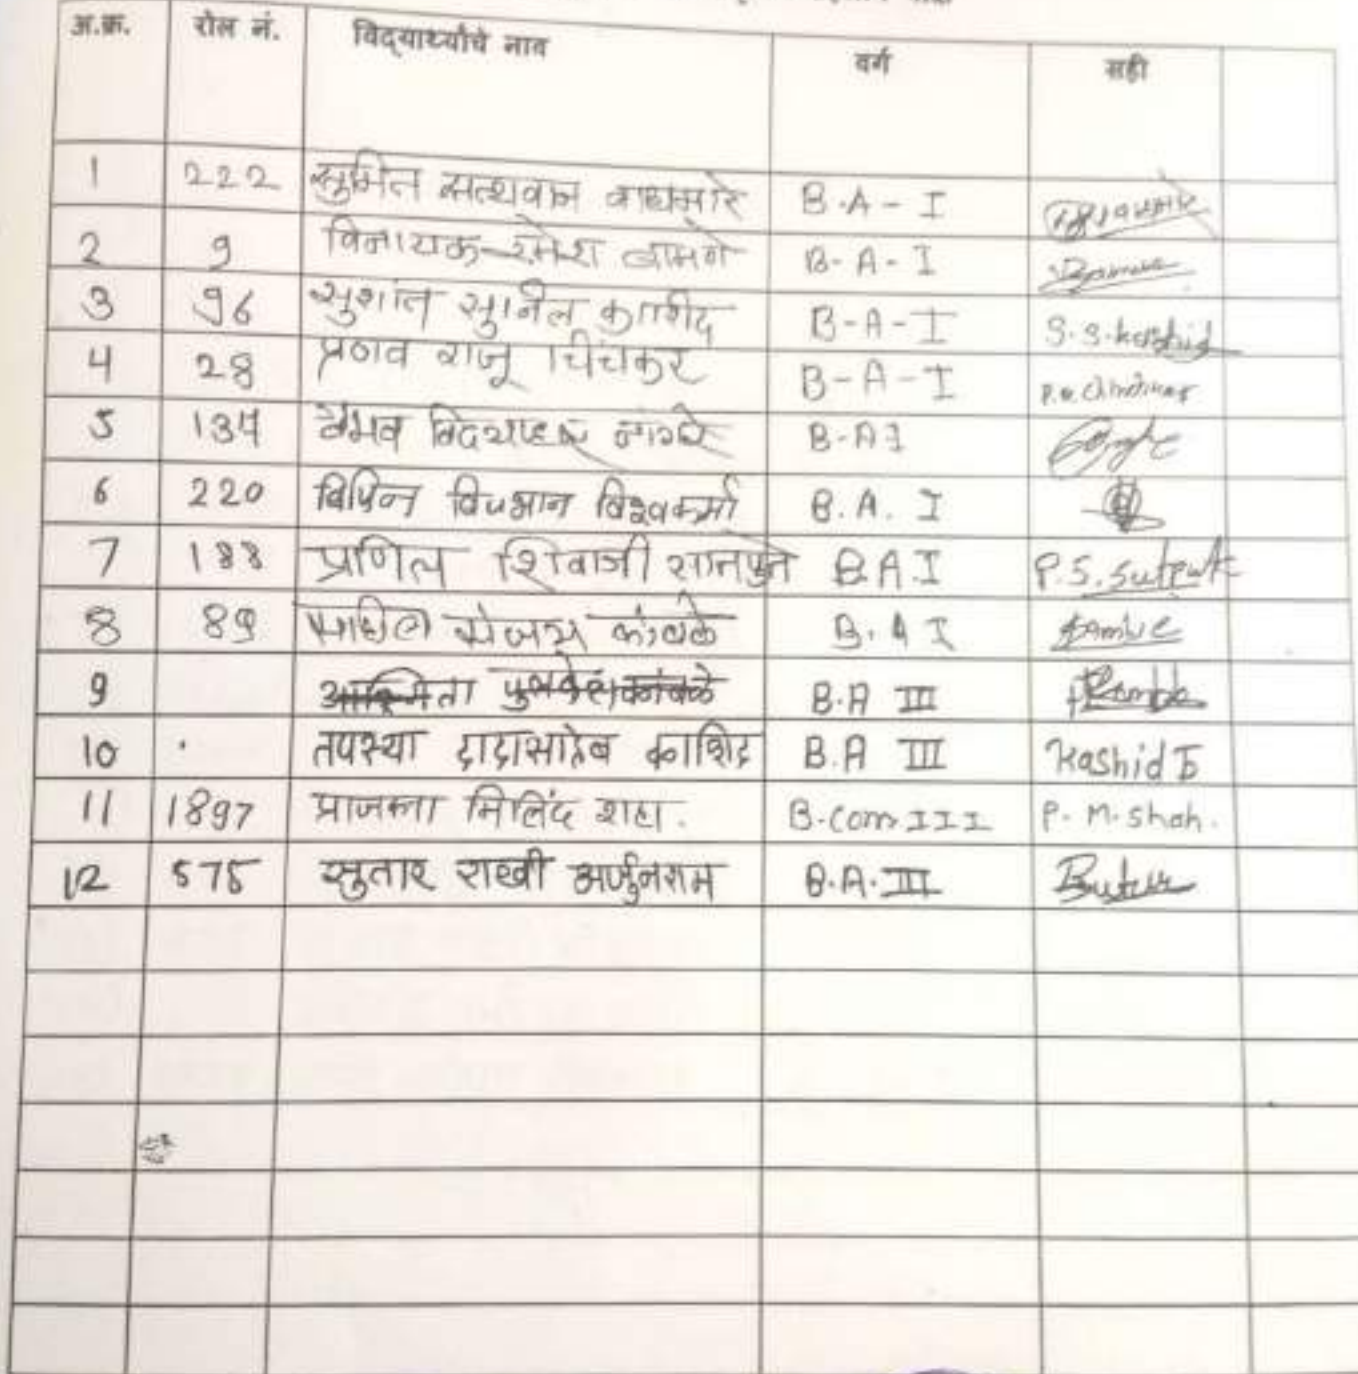 अ.क्र. रोल नं. विद्यार्थ्यांचे नाव वर्ग सही
1 222 सुमित सत्यवान वाघमारे B.A-I
2 9 विनायक रमेश बामणे B-A-I
3 96 सुशांत सुनिल काशिद B-A-I S.S.kashid
4 28 प्रणव राजू चिंचकर B-A-I
5 134 वैभव B-AI
6 220 विपिन विश्वकर्मा B.A. I
7 188 प्रणिल शिवाजी सातपुते B.A.I P.S.Sutput
8 89 कांबळे B.A I
9 B.A III
10 तपस्या दादासाहेब काशिद B.A III Kashid T
11 1897 प्राजक्ता मिलिंद शहा. B.com III P. M. Shah.
12 575 सुतार राखी अर्जुनराम B.A. III